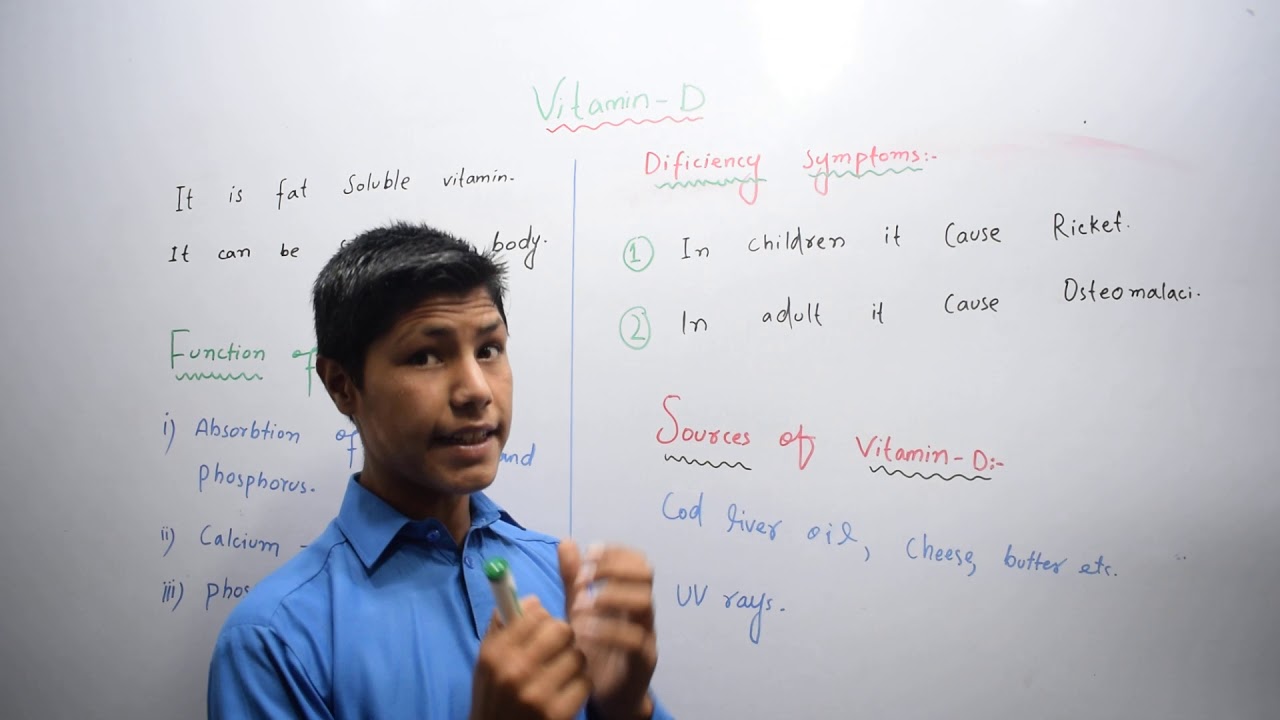 Vitamin - D
It is fat Soluble vitamin.
It can be body.
Function of
i) Absorbtion of and
phosphorus.
ii) Calcium -
iii) phos
Dificiency Symptoms:-
1 In children it Cause Ricket.
2 In adult it Cause Osteomalaci.
Sources of Vitamin - D:-
Cod liver oil, Cheese, butter etc.
UV rays.